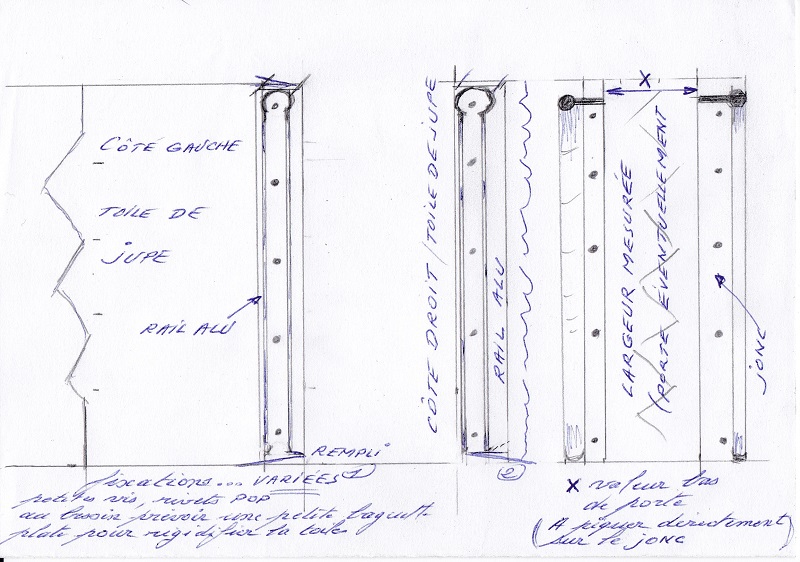 CÔTÉ GAUCHE
TOILE DE
JUPE
RAIL ALU
REMPLI
1
fixations... VARIÉES
petites vis, rivets POP
au besoin prévoir une petite baguette
plate pour rigidifier la toile
CÔTÉ DROIT / TOILE DE JUPE
RAIL ALU
2
X
LARGEUR MESURÉE
(PORTE ÉVENTUELLEMENT
JONC
X valeur bas
de porte
(A piquer directement)
sur le JONC